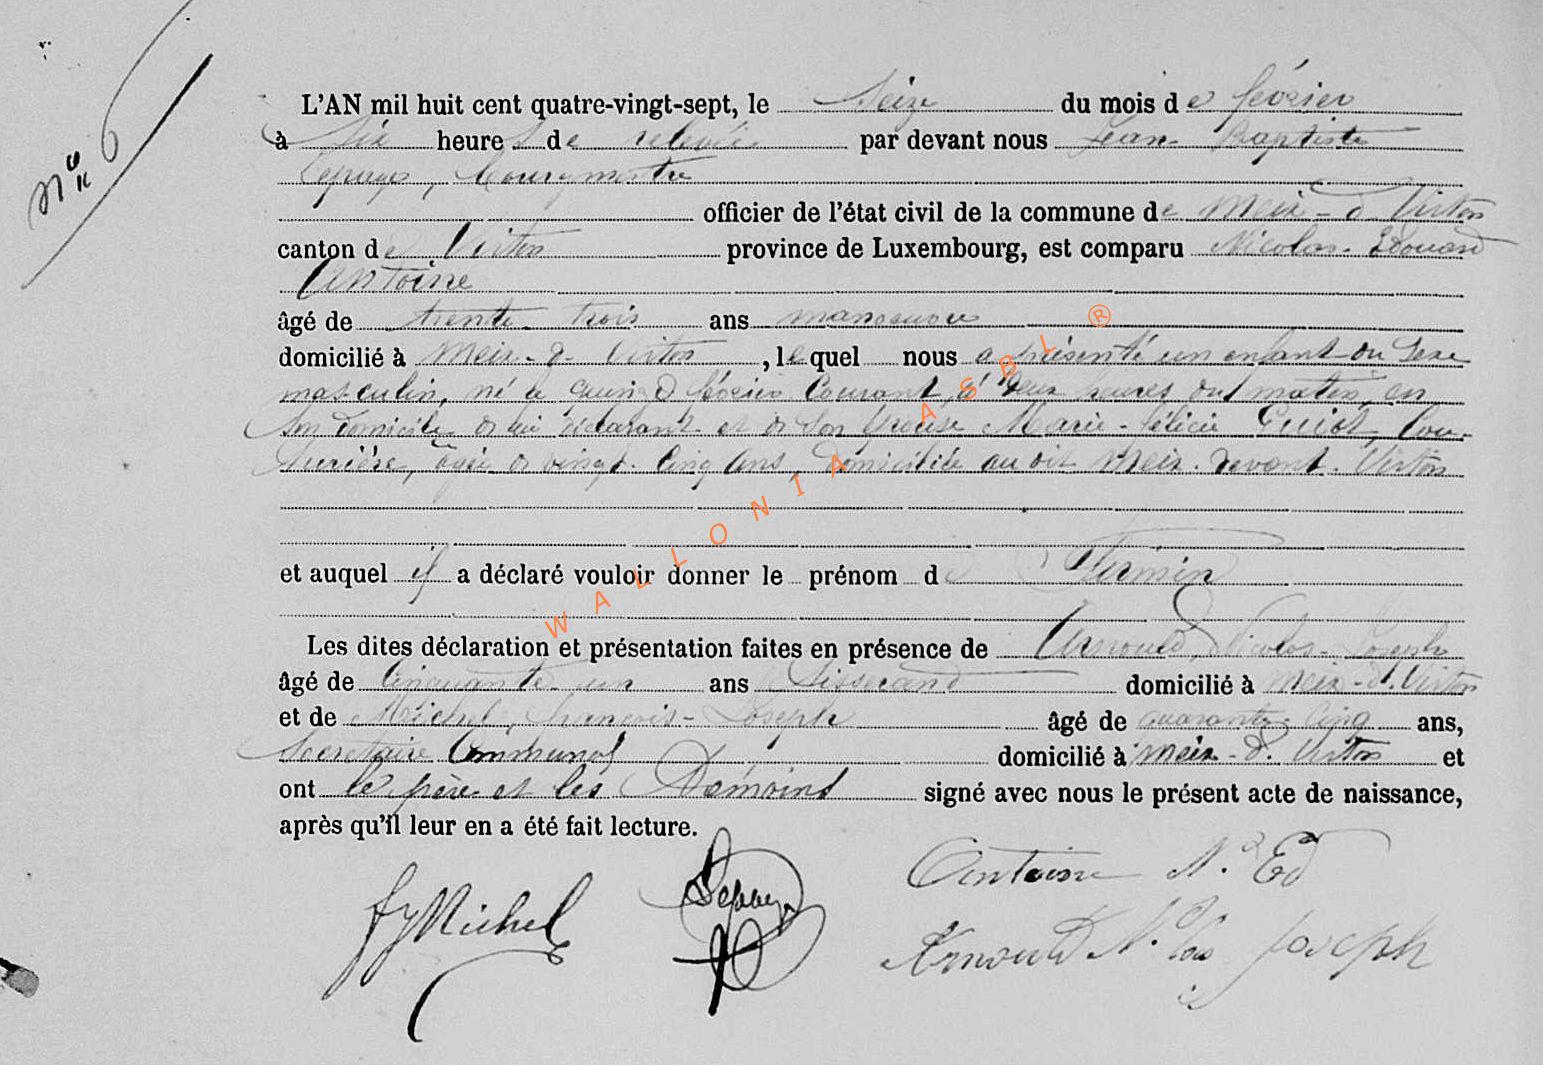 N° 6
L'AN mil huit cent quatre-vingt-sept, le seize du mois de février
à six heures de relevée par devant nous Jean Baptiste
Lepage, bourgmestre
officier de l'état civil de la commune de Meix-d-Virton
canton de Virton province de Luxembourg, est comparu Nicolas-Edouard
Antoine
âgé de trente trois ans manoeuvre
domicilié à Meix-d-Virton, lequel nous a présenté un enfant du sexe
masculin, né le quinze février courant, à deux heures du matin, en
son domicile de lui déclarant et de son épouse Marie-Félicie Guiot, Cou-
turière, âgée de vingt-cinq ans, domiciliée au dit Meix-devant-Virton
et auquel il a déclaré vouloir donner le prénom de Firmin
Les dites déclaration et présentation faites en présence de Arnould, Nicolas-Joseph
âgé de cinquante un ans tisserand domicilié à Meix-d.Virton
et de Michel, François-Joseph âgé de quarante cinq ans,
Secrétaire Communal domicilié à Meix-d.Virton et
ont le père et les témoins signé avec nous le présent acte de naissance,
après qu'il leur en a été fait lecture.
Antoine N. Ed
FJ Michel Lepage
Arnould N. las Joseph
WALLONIA ASBL ®